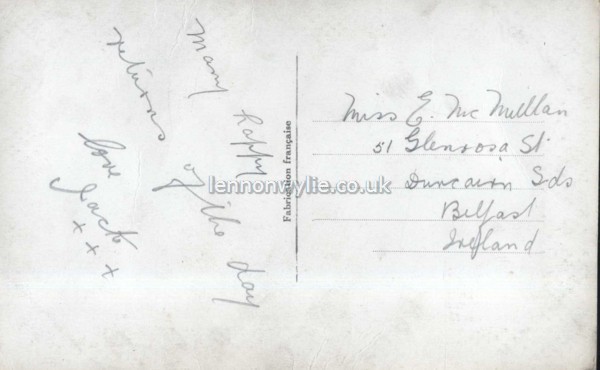 Many happy
returns of the day
love
Jack
x x x
Fabrication française
Miss E. Mc Mullan
51 Glenrosa St
Duncairn Gds
Belfast
Ireland
lennonwylie.co.uk